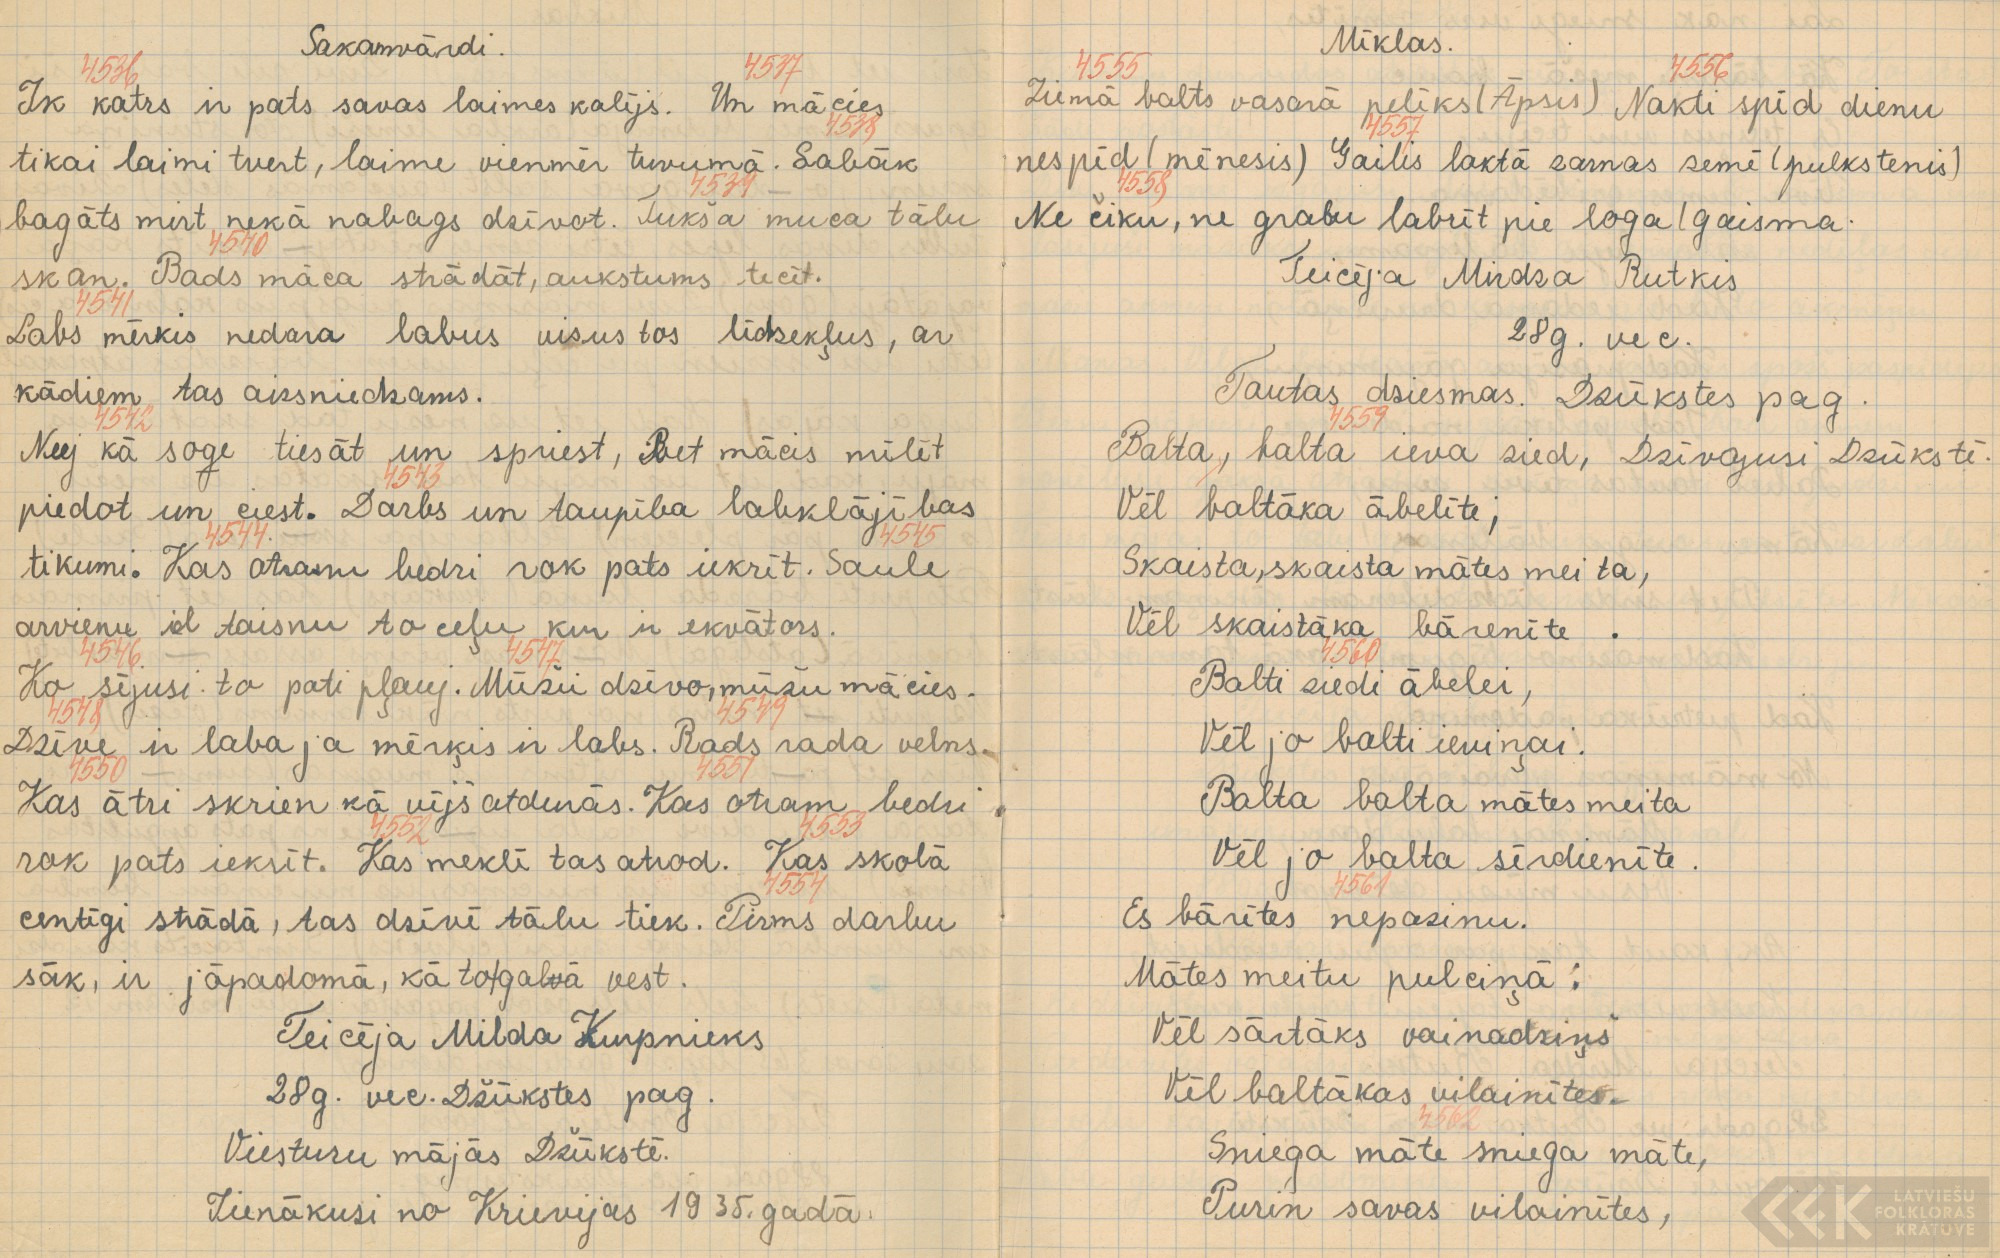 Sakamvārdi.
4536 4537
Ik katrs ir pats savas laimes kalējs. Un mācies
4538
tikai laimi tvert, laime vienmēr tuvumā. Labāk
4539
bagāts mirt nekā nabags dzīvot. Tukša muca tālu
4540
skan. Bads māca strādāt, aukstums tecēt.
4541
Labs mērķis nedara labus visus tos līdzekļus, ar
kādiem tas aizsniedzams.
4542
Neej kā soģe tiesāt un spriest, Bet mācies mīlēt
4543
piedot un ciest. Darbs un taupība labklājības
4544 4545
tikumi. Kas otram bedri rok pats iekrīt. Saule
arvienu iet taisnu to ceļu kur ir ekvātors.
4546 4547
Ko sējusi to pati pļauj. Mūžu dzīvo, mūžu mācies.
4548 4549
Dzīve ir laba ja mērķis ir labs. Rads rada velns.
4550 4551
Kas ātri skrien kā vējš atdusās. Kas otram bedri
4552 4553
rok pats iekrīt. Kas meklē tas atrod. Kas skolā
4554
centīgi strādā, tas dzīvē tālu tiek. Pirms darbu
sāk, ir jāpadomā, kā to galvā vest.
Teicēja Milda Kurpnieks
28g. vec. Džūkstes pag.
Viesturu mājās Džūkstē.
Ienākusi no Krievijas 1935. gadā.
Mīklas.
4555 4556
Ziemā balts vasarā pelēks (Āpsis) Nakti spīd dienu
4557
nespīd (mēnesis) Gailis laktā zarnas zemē (pulkstenis)
4558
Ne čiku, ne grabu labrīt pie loga (gaisma.
Teicēja Mirdza Rutkis
28g. vec.
Tautas dziesmas. Dzūkstes pag.
4559
Balta, balta ieva zied, Dzīvojusi Dzūkstē.
Vēl baltāka ābelīte;
Skaista, skaista mātes meita,
Vēl skaistāka bārenīte.
4560
Balti ziedi ābelei,
Vēl jo balti ieviņai.
Balta balta mātes meita
Vēl jo balta sirdienīte.
4561
Es bārītes nepazinu.
Mātes meitu pulciņā:
Vēl sārtāks vainadziņš
Vēl baltākas vilainītes.
4562
Sniega māte sniega māte,
Purin savas vilainītes,
LATVIEŠU
FOLKLORAS
KRĀTUVE